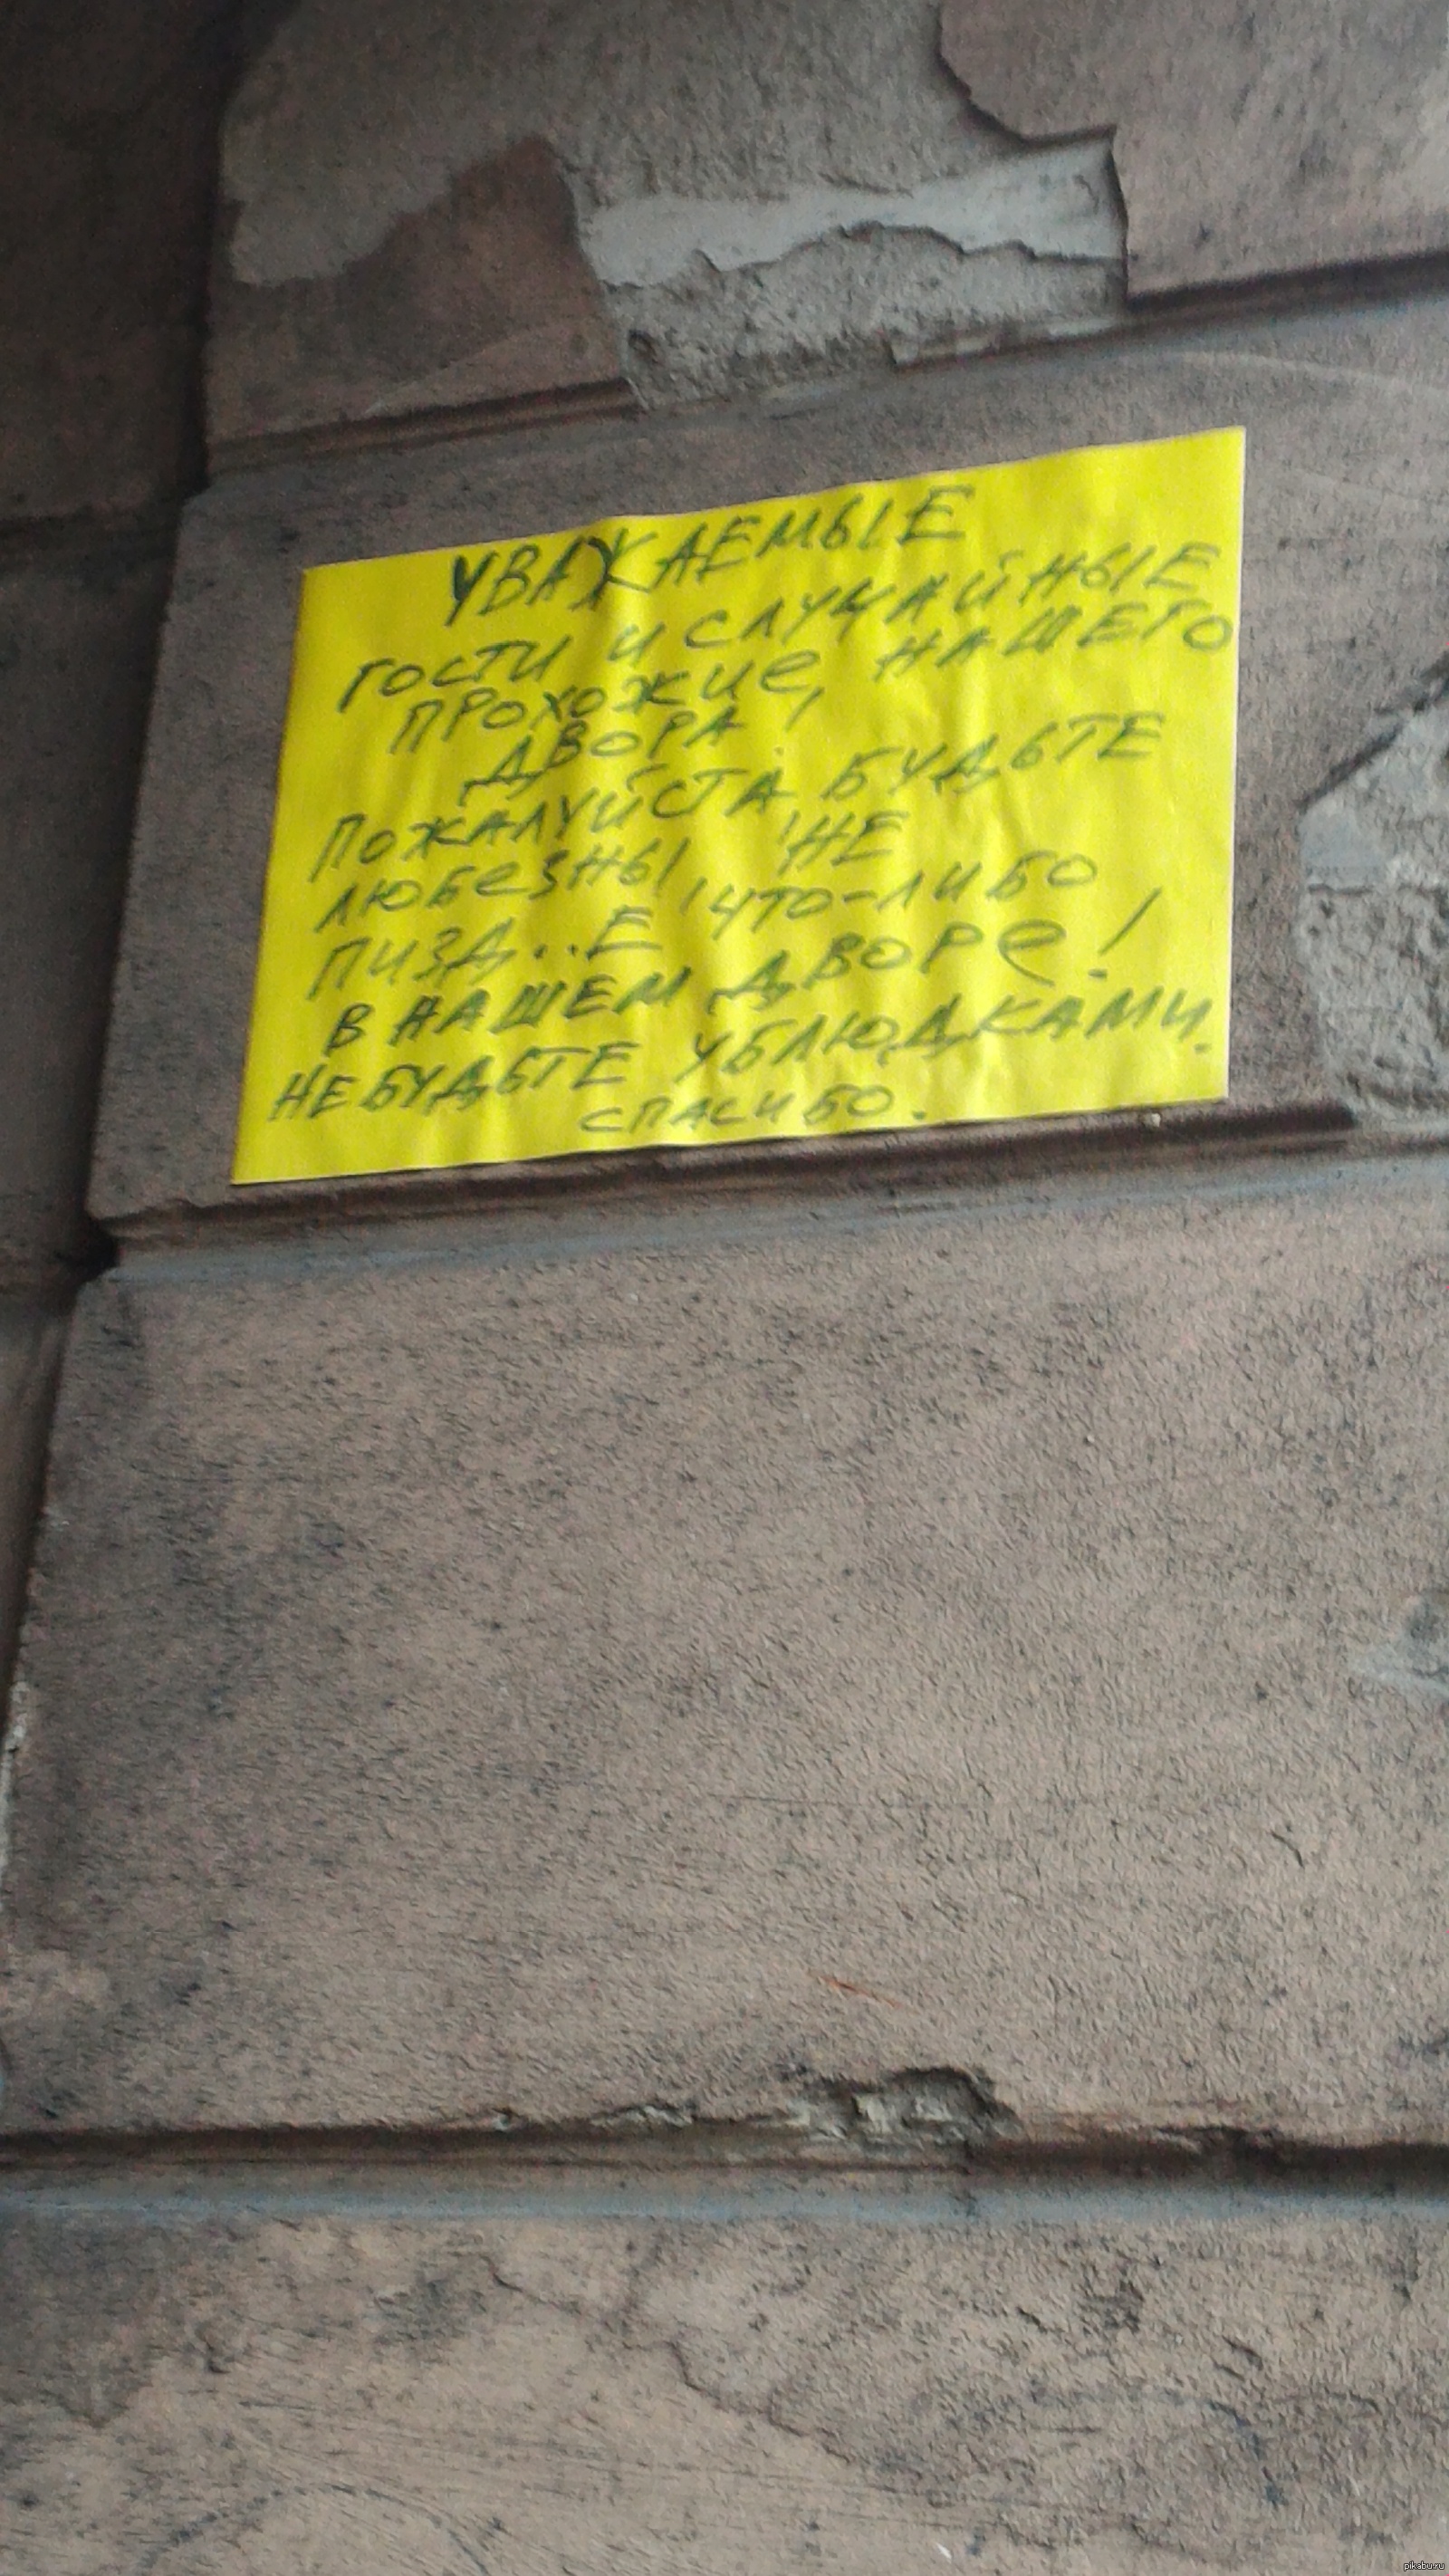 УВАЖАЕМЫЕ
ГОСТИ И СЛУЧАЙНЫЕ
ПРОХОЖИЕ, НАШЕГО
ДВОРА!
ПОЖАЛУЙСТА БУДЬТЕ
ЛЮБЕЗНЫ, НЕ
ПИЗД...Е ЧТО-ЛИБО
В НАШЕМ ДВОРЕ!
НЕ БУДЬТЕ УБЛЮДКАМИ.
СПАСИБО.
pikabu.ru